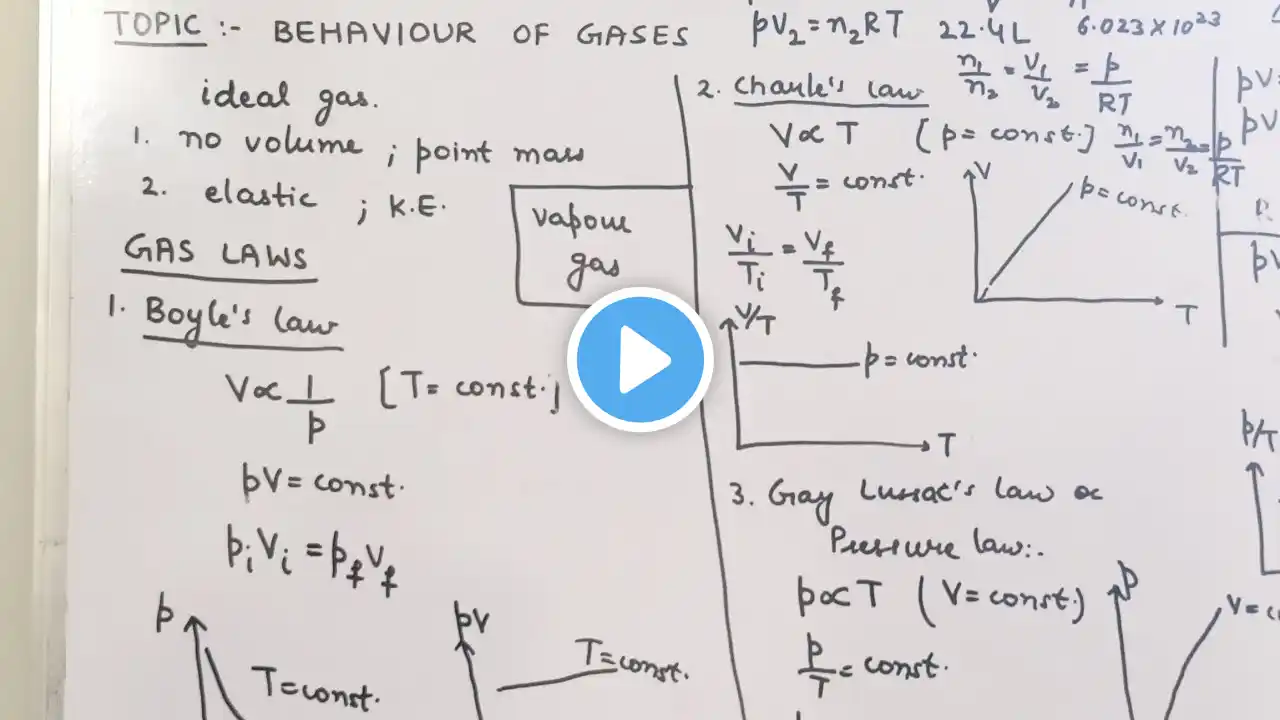 TOPIC :- BEHAVIOUR OF GASES
pV₂ = n₂RT 22.4L 6.023×10²³
ideal gas.
1. no volume ; point mass
2. elastic ; K.E.
vapour
gas
GAS LAWS
1. Boyle's law
V∝ 1/p [T= const.]
pV = const.
pᵢVᵢ = p_f V_f
p
T=const.
pV
T=const.
2. Charle's law
n₁/n₂ = V₁/V₂ = p/RT
V∝ T [p= const.]
n₁/V₁ = n₂/V₂ = p/RT
V/T = const.
V
p=const.
T
Vᵢ/Tᵢ = V_f/T_f
V/T
p=const.
T
3. Gay Lussac's law or
Pressure law:.
p∝T (V=const.)
p/T = const.
p
pV=
pV
pV
p/T